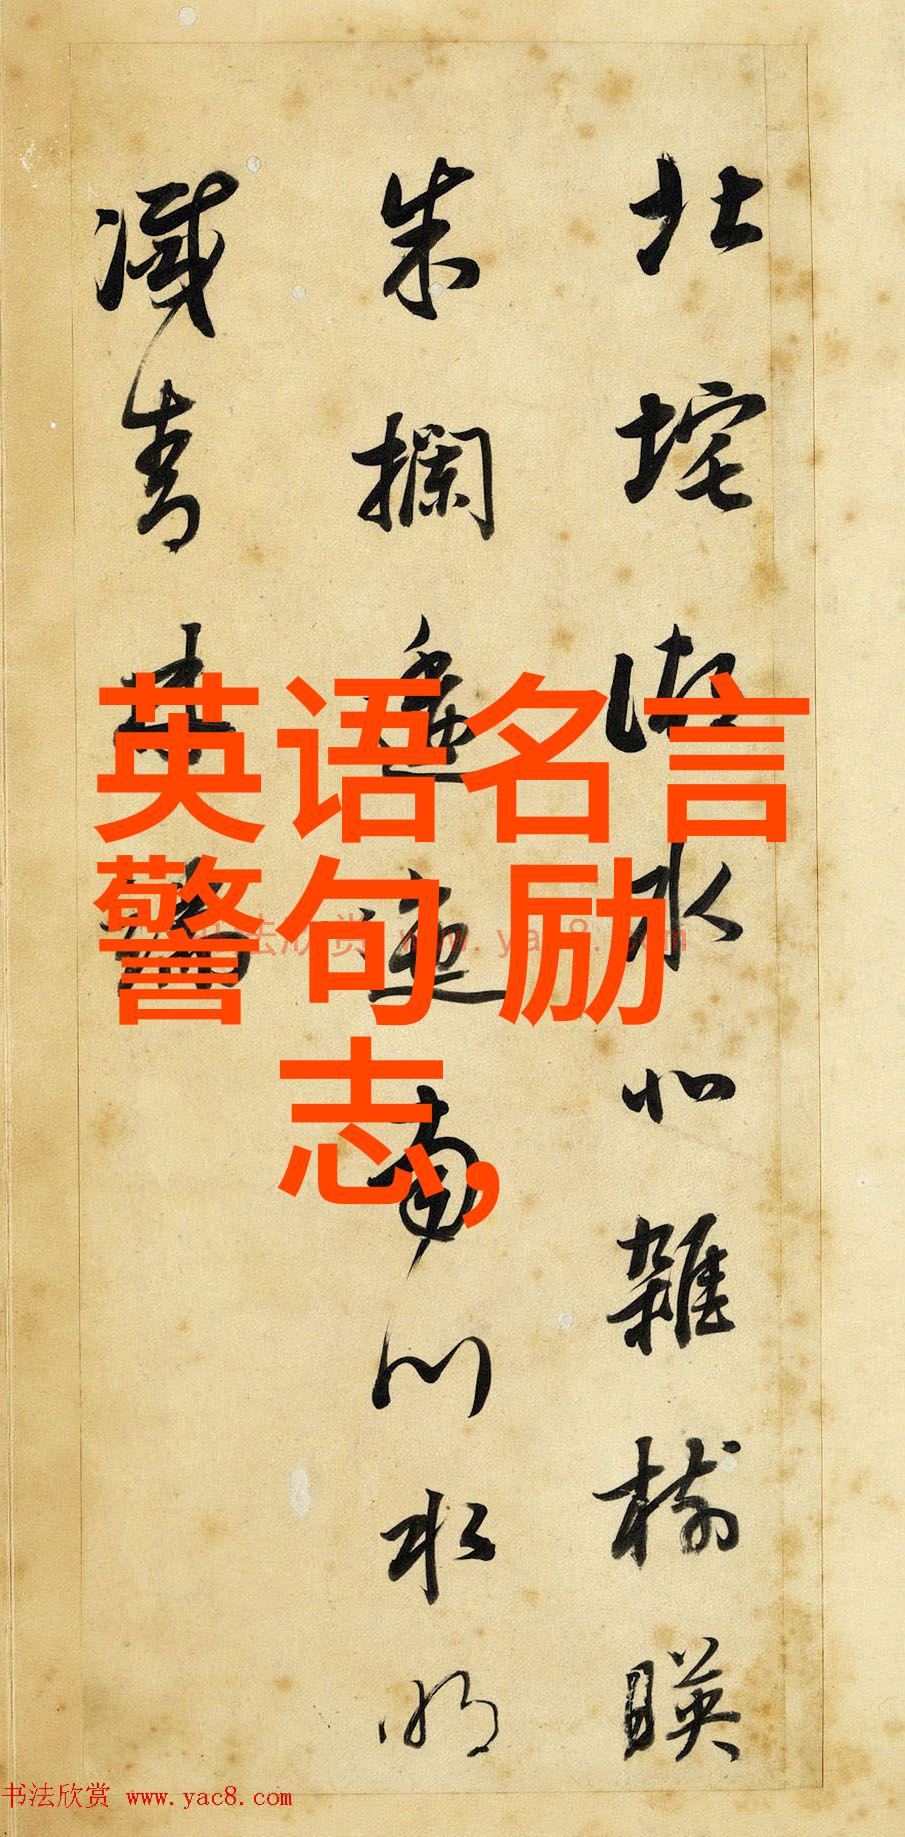 北垞湖水北雜樹暎
朱欄逶迤南川水明
滅青林端
英语名言
警句 励
志,
书法欣赏 www.yac8.com
书法欣赏 www.yac8.com